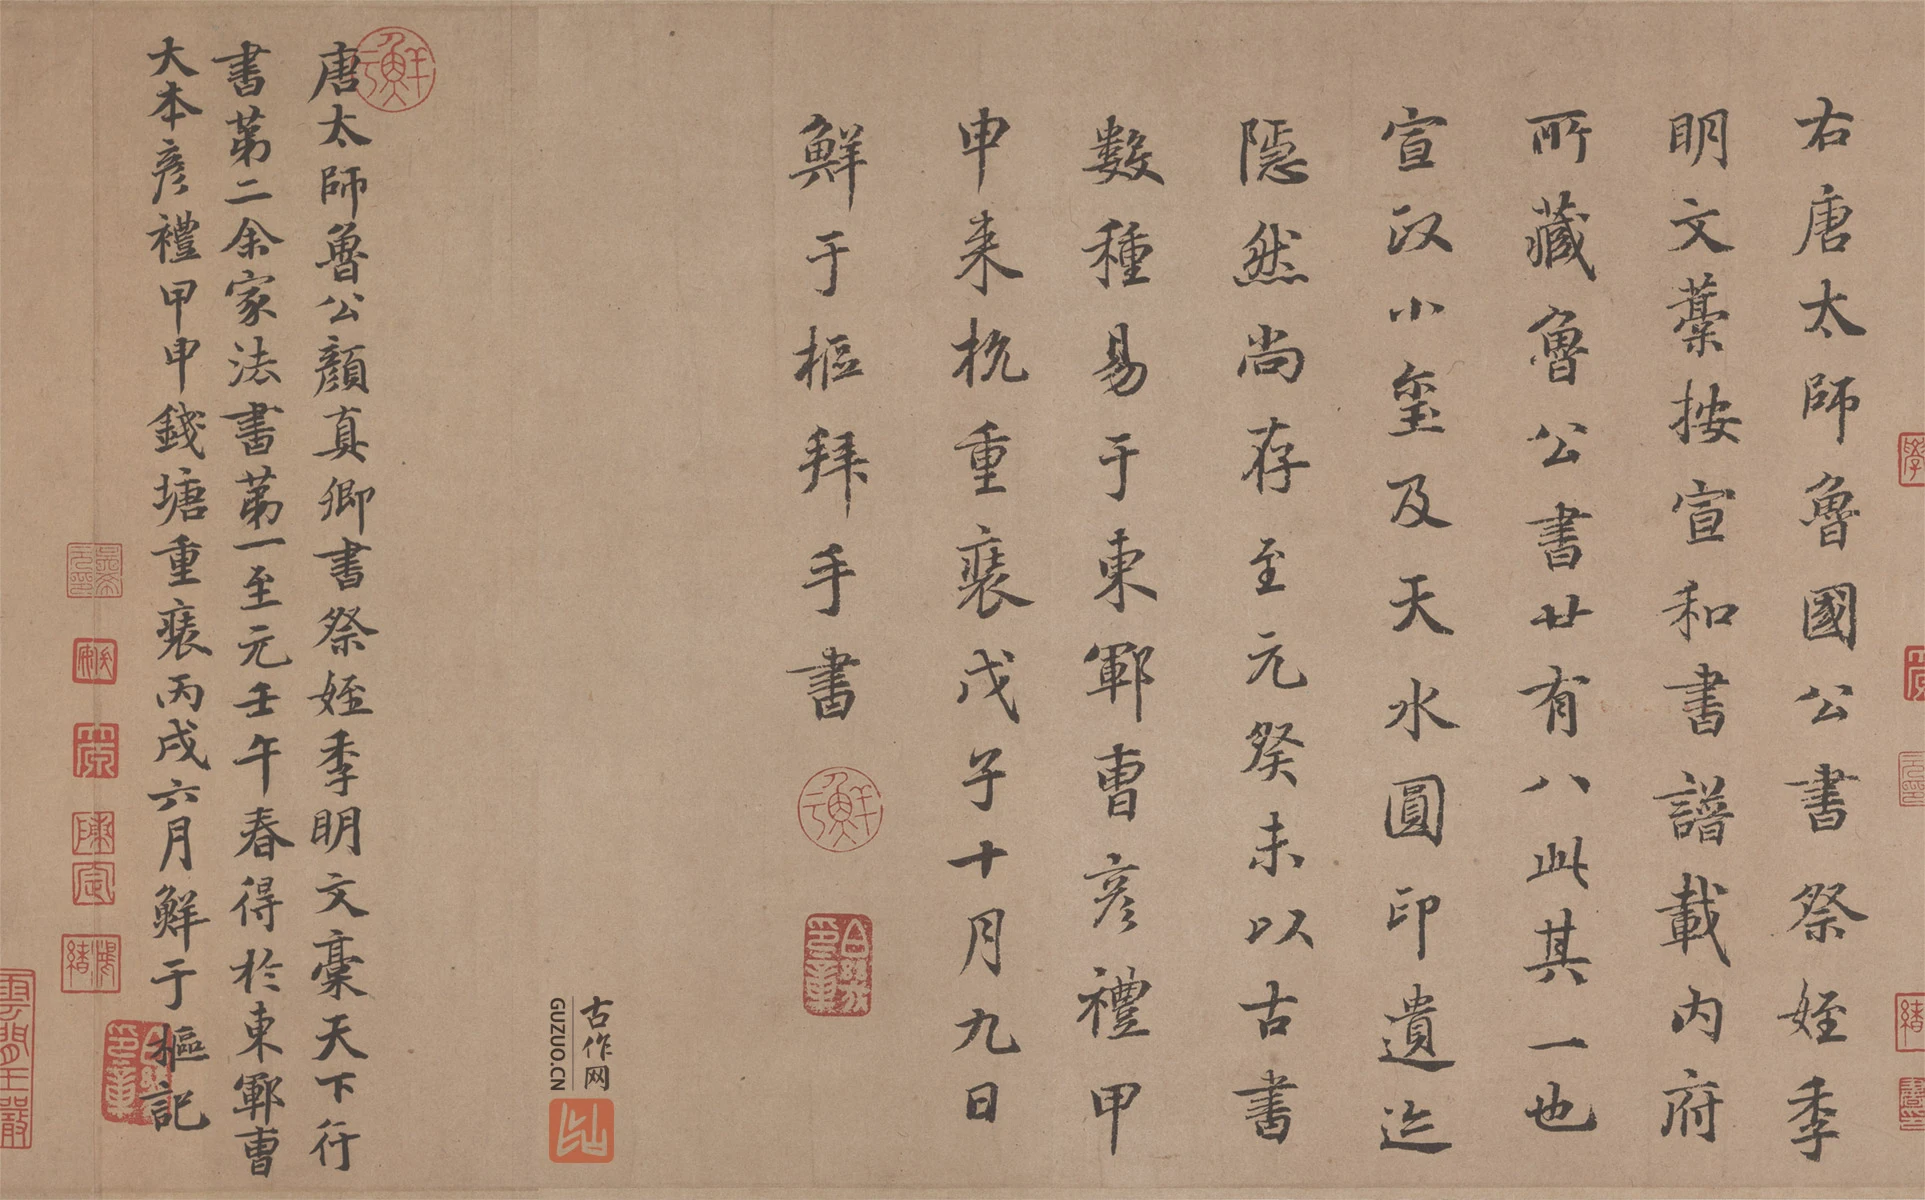 右唐太師魯國公書祭姪季
明文藁按宣和書譜載内府
所藏魯公書廿有八此其一也
宣政小璽及天水圓印遺迹
隱然尚存至元癸未以古書
數種易于東鄆曹彦禮甲
申来杭重裝戊子十月九日
鮮于樞拜手書
古作网
GUZUO.CN
唐太師魯公顔真卿書祭姪季明文稾天下行
書第二余家法書第一至元壬午春得於東鄆曹
大本彦禮甲申錢塘重裝丙戌六月鮮于樞記